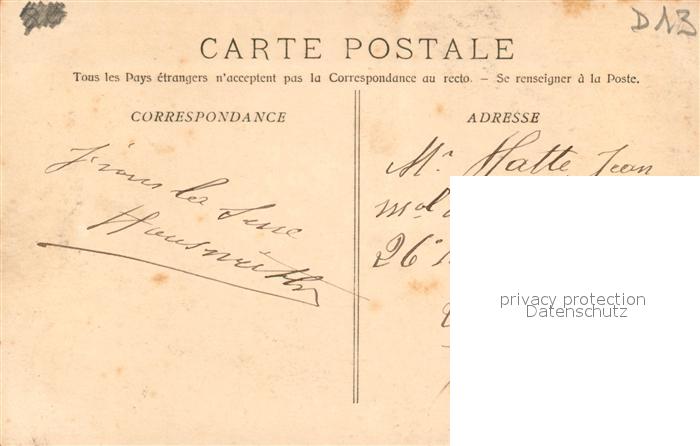 D13
CARTE POSTALE
Tous les Pays étrangers n'acceptent pas la Correspondance au recto. — Se renseigner à la Poste.
CORRESPONDANCE
ADRESSE
la
Mr Matte Jean
26e
privacy protection
Datenschutz